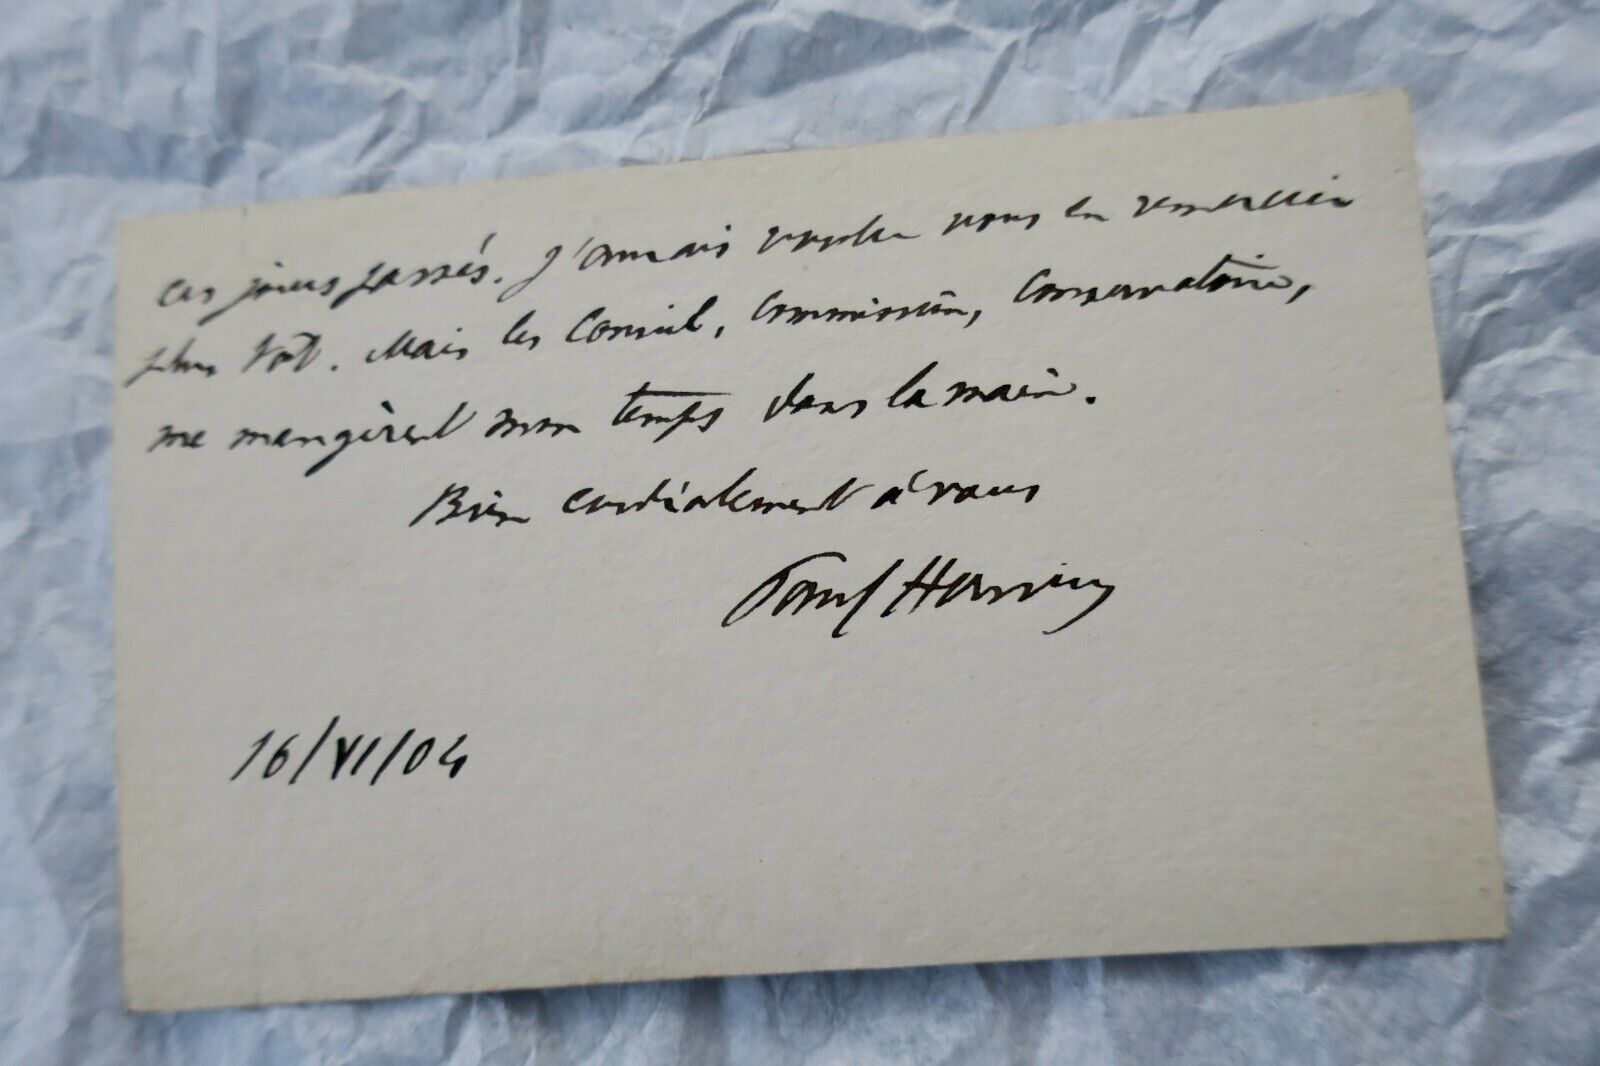 ces jours passés. J'aurais voulu vous en remercier
plus tôt. Mais les Conseil, Commission, Conservatoire,
me mangèrent mon temps dans la main.
Bien cordialement à vous
Paul Hervieu
16/VI/04